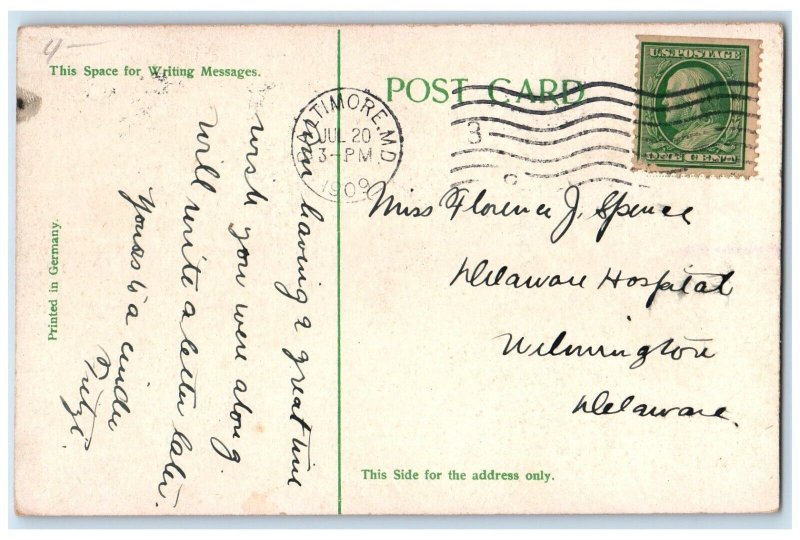 4-
This Space for Writing Messages.
POST CARD
U.S. POSTAGE
ONE CENT
BALTIMORE, MD.
JUL 20
3-PM
1909
3
am having a great time
wish you were along.
will write a letter later.
Yours to a cinder
Printed in Germany.
Miss Florence J. Spence
Delaware Hospital
Wilmington
Delaware.
This Side for the address only.